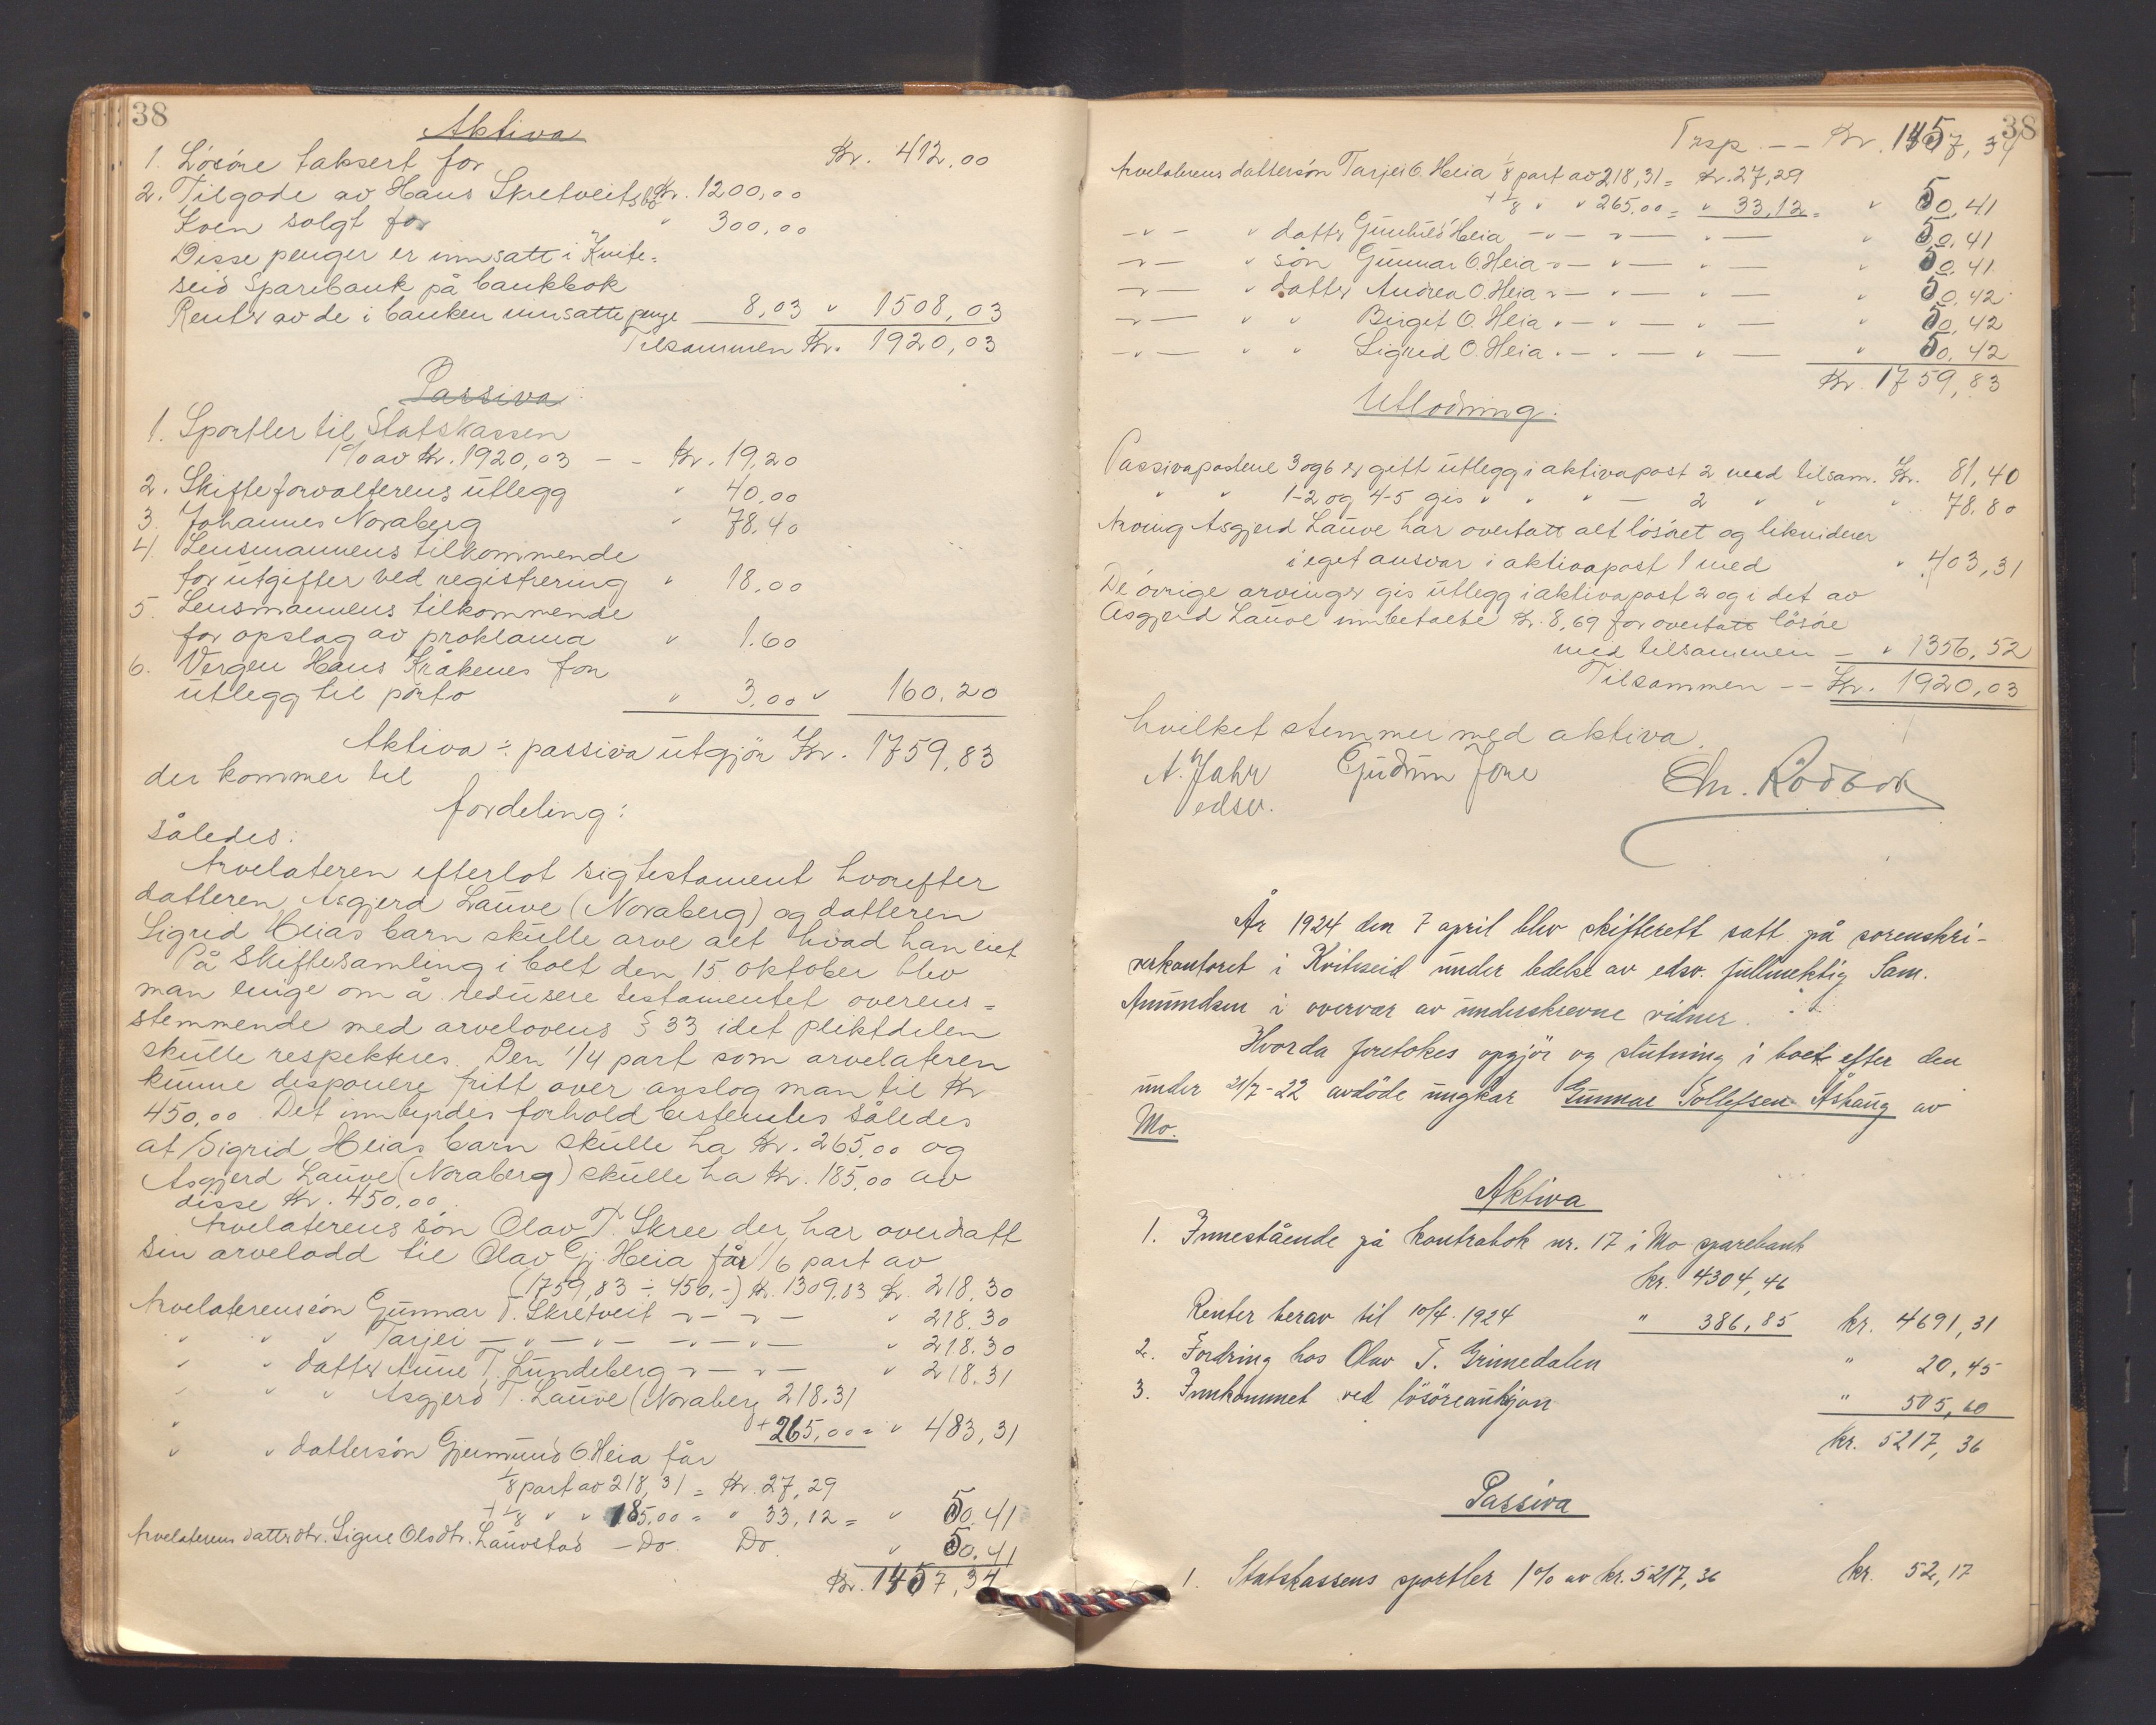 38
Aktiva
1. Lösöre taksert for Kr. 412.00
2. Tilgode av Hans Skretveits bo Kr. 1200,00
Koen solgt for " 300,00
Disse penger er innsatt i Kvite-
seid Sparebank på bankbok
Renter av de i banken innsatte penge 8,03 " 1508,03
Tilsammen Kr. 1920,03
Passiva
1. Sportler til Statskassen
1% av Kr. 1920,03 - - Kr. 19,20
2. Skifteforvalterens utlegg " 40,00
3. Johannes Noraberg " 78,40
4. Lensmannens tilkommende
for utgifter ved registrering " 18,00
5. Lensmannens tilkommende
for opslag av proklama " 1.60
6. Vergen Hans Kråkenes for
utlegg til porto " 3,00 " 160,20
Aktiva ÷ passiva utgjör Kr. 1759,83
der kommer til
fordeling:
således:
Arvelateren efterlot sig testament hvorefter
datteren Asgjerd Lauve (Noraberg) og datteren
Sigrid Heias barn skulle arve alt hvad han eiet
På Skiftesamling i boet den 15 oktober blev
man enige om å redusere testamentet overens-
stemmende med arvelovens § 33 idet pliktdelen
skulle respekteres. Den 1/4 part som arvelateren
kunne disponere fritt over anslog man til Kr
450,00. Det innbyrdes forhold bestemtes således
at Sigrid Heias barn skulle ha Kr. 265,00 og
Asgjerd Lauve (Noraberg) skulle ha Kr. 185,00 av
disse Kr. 450,00.
Arvelaterens sön Olav T. Skree der har overdratt
sin arvelodd til Olav Gj. Heia får 1/6 part av
(1759,83 ÷ 450,-) Kr. 1309.83 Kr. 218.30
Arvelaterens sön Gunnar T. Skretveit - " - " - " 218.30
" " " Tarjei - " - " - " - " 218.30
" " datter Anne T. Lundeberg - " - " - " 218.31
" " " Asgjerd T. Lauve (Noraberg 218.31
" + 265,00 = " 483,31
" " dattersön Gjermund O. Heia får
1/8 part av 218,31 = Kr. 27,29
+ 1/8 " " 185,00 = " 33,12 = " 50.41
Arvelaterens datterdtr. Signe Olsdtr. Lauvstad - Do. Do. " 50.41
Kr. 1457,34
38
Trsp. - - Kr. 1457,34
Arvelaterens dattersön Tarjei O. Heia 1/8 part av 218,31 = Kr. 27,29
+ 1/8 " " 265,00 = " 33,12 = " 50,41
- " - " datter Gunhild Heia - " - " - " - " 50.41
- " - " sön Gunnar O. Heia - " - " - " - " 50.41
- " - " datter Andrea O. Heia - " - " - " - " 50,42
- " - " " Birget O. Heia - " - " - " - " 50,42
- " - " " Sigrid O. Heia - " - " - " - " 50.42
Kr. 1759,83
Utlodning:
Passivapostene 3 og 6 er gitt utlegg i aktivapost 2 med tilsam. Kr. 81,40
" " 1-2 og 4-5 gis " " " - 2 " " " 78.80
Arving Asgjerd Lauve har overtatt alt lösöret og likviderer
i eget ansvar i aktivapost 1 med " 403,31
De övrige arvinger gis utlegg i aktivapost 2 og i det av
Asgjerd Lauve innbetalte Kr. 8,69 for overtatt lösöre
med tilsammen - " 1356,52
Tilsammen - - Kr. 1920,03
hvilket stemmer med aktiva.
A. Jahr Gudrun Jore Chr. Rödbok
edsv.
År 1924 den 7 april blev skifterett satt på sorenskri-
verkontoret i Kviteseid under ledelse av edsv. fullmektig Sam.
Amundsen i overvær av underskrevne vidner.
Hvorda foretokes opgjör og slutning i boet efter den
under 21/7-22 avdöde ungkar Gunnar Tollefsen Åshaug av
Mo.
Aktiva
1. Innestående på kontrabok nr. 17 i Mo sparebank
kr. 4304,46
Renter herav til 10/4-1924 " 386,85 kr. 4691,31
2. Fordring hos Olav T. Grimedalen " 20,45
3. Innkommet ved lösöreauksjon " 505,60
kr. 5217,36
Passiva
1. Statskassens sportler 1% av kr. 5217,36 kr. 52,17